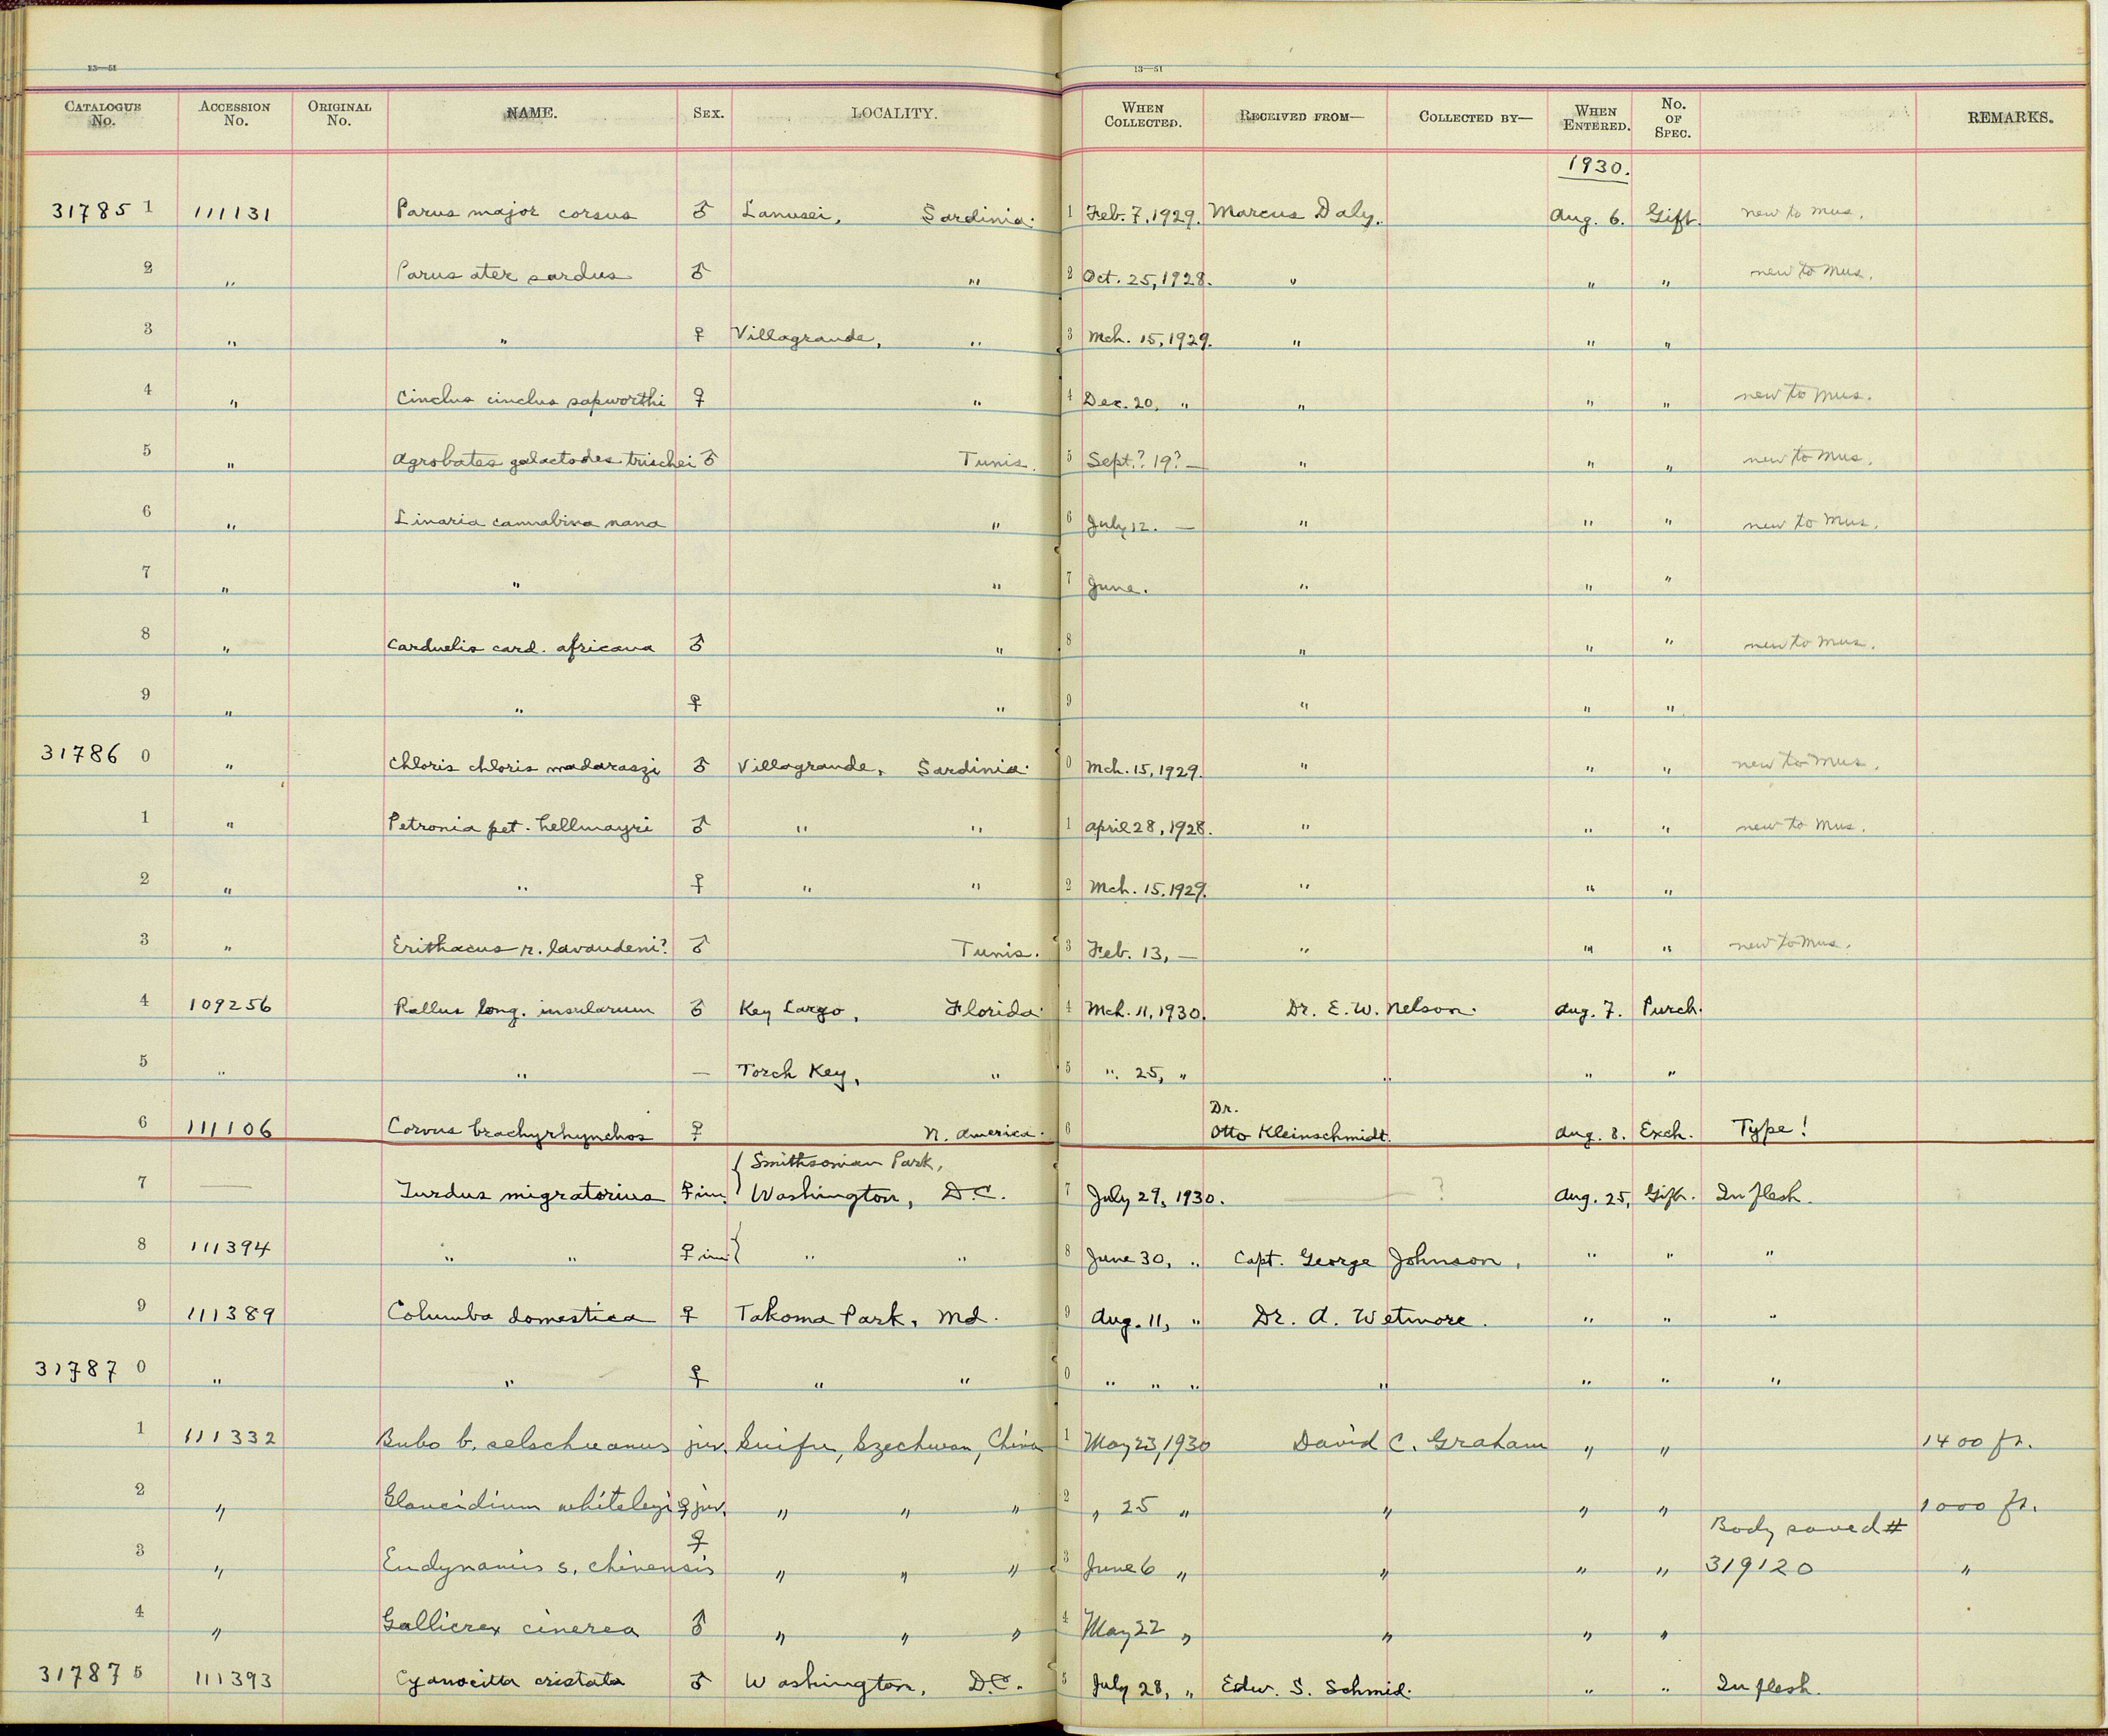 13—51 13—51
CATALOGUE No. ACCESSION No. ORIGINAL No. NAME. SEX. LOCALITY. WHEN COLLECTED. RECEIVED FROM— COLLECTED BY— WHEN ENTERED. No. OF SPEC. REMARKS.
1930.
31785 1 111131 Parus major corsus ♂ Lanusei, Sardinia. 1 Feb. 7, 1929. Marcus Daly. Aug. 6. Gift. new to mus.
2 " Parus ater sardus ♂ " 2 Oct. 25, 1928. " " " new to mus.
3 " " ♀ Villagrande, " 3 Mch. 15, 1929. " " "
4 " Cinclus cinclus sapworthi ♀ " 4 Dec. 20, " " " " new to mus.
5 " Agrobates galactodes trischei ♂ Tunis. 5 Sept.? 19? — " " " new to mus.
6 " Linaria cannabina nana " 6 July 12. — " " " new to mus.
7 " " " 7 June. " " "
8 " Carduelis card. africana ♂ " 8 " " " new to mus.
9 " " ♀ " 9 " " "
31786 0 " Chloris chloris madaraszi ♂ Villagrande, Sardinia. 0 Mch. 15, 1929. " " " new to mus.
1 " Petronia pet. hellmayri ♂ " " 1 April 28, 1928. " " " new to mus.
2 " " ♀ " " 2 Mch. 15, 1929. " " "
3 " Erithacus r. lavaudeni? ♂ Tunis. 3 Feb. 13, — " " " new to mus.
4 109256 Rallus long. insularum ♂ Key Largo, Florida. 4 Mch. 11, 1930. Dr. E. W. Nelson. Aug. 7. Purch.
5 " " — Torch Key, " 5 " 25, " " " "
Dr.
6 111106 Corvus brachyrhynchos ♀ N. America. 6 Otto Kleinschmidt. Aug. 8. Exch. Type!
{ Smithsonian Park,
7 — Turdus migratorius ♀ im. Washington, D.C. 7 July 29, 1930. — ? Aug. 25, Gift. In flesh.
8 111394 " " ♀ im. { " " 8 June 30, " Capt. George Johnson, " " "
9 111389 Columba domestica ♀ Takoma Park, Md. 9 Aug. 11, " Dr. A. Wetmore. " " "
31787 0 " " ♀ " " 0 " " " " " " "
1 111332 Bubo b. selschuanus juv. Suifu, Szechwan, China 1 May 23, 1930 David C. Graham " " 1400 ft.
2 " Glaucidium whiteleyi ♀ juv. " " " 2 " 25 " " " " 1000 ft.
♀ Body saved #
3 " Eudynamis s. chinensis " " " 3 June 6 " " " " 319120 "
4 " Gallicrex cinerea ♂ " " " 4 May 22 " " " "
31787 5 111393 Cyanocitta cristata ♂ Washington, D.C. 5 July 28, " Edw. S. Schmid. " " In flesh.